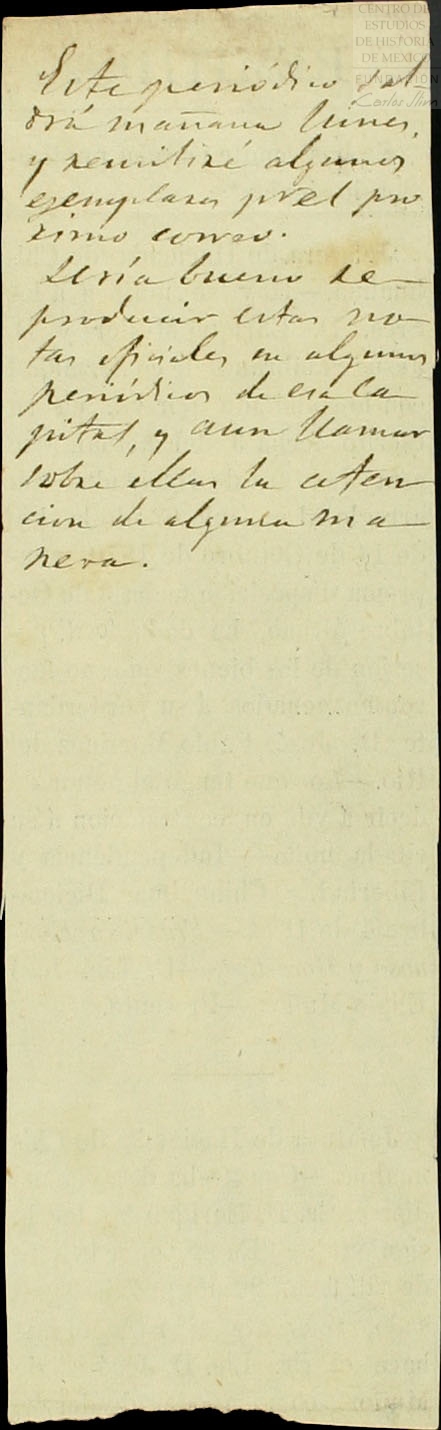 CENTRO DE
ESTUDIOS
DE HISTORIA
DE MEXICO
FUNDACIÓN
Carlos Slim
Este periódico sal
drá mañana lunes,
y remitiré algunos
ejemplares pr el pro
ximo correo.
Seria bueno re-
producir estas no-
tas oficiales en algunos
periódicos de esa ca-
pital, y aun llamar
sobre ellas la aten-
cion de alguna ma-
nera.